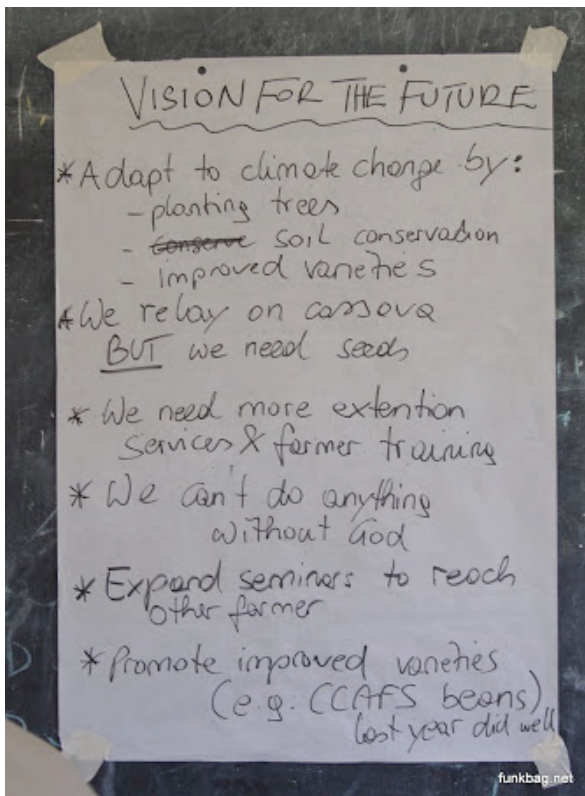 VISION FOR THE FUTURE
* Adapt to climate change by:
- planting trees
- Conserve soil conservation
- Improved varieties
* We relay on cassava
BUT we need seeds
* We need more extention
Services & farmer training
* We can't do anything
without God
* Expand seminars to reach
other farmer
* Promote improved varieties
(e.g. CCAFS beans)
last year did well
funkbag.net